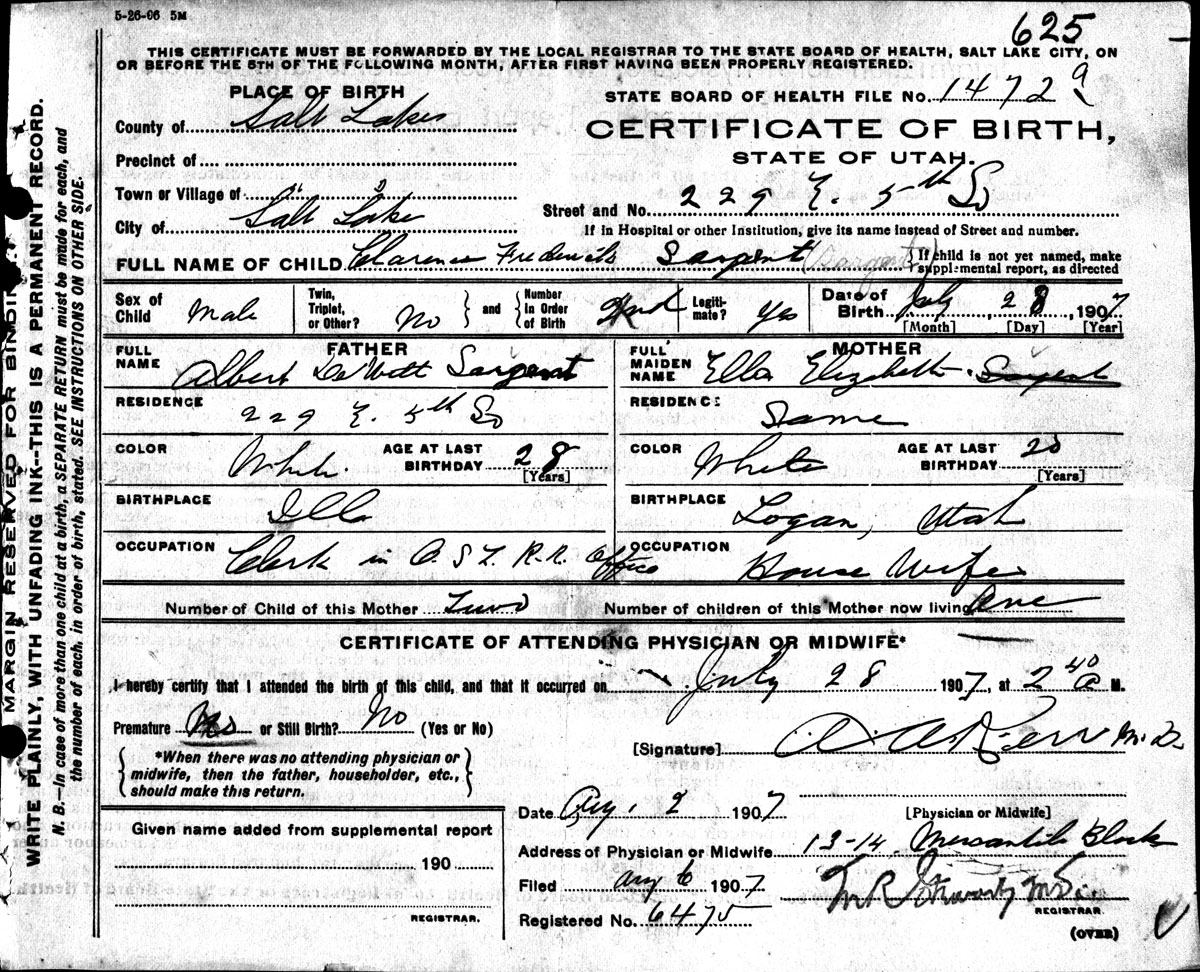 5-26-06 5M
625
THIS CERTIFICATE MUST BE FORWARDED BY THE LOCAL REGISTRAR TO THE STATE BOARD OF HEALTH, SALT LAKE CITY, ON
OR BEFORE THE 5TH OF THE FOLLOWING MONTH, AFTER FIRST HAVING BEEN PROPERLY REGISTERED.
PLACE OF BIRTH
STATE BOARD OF HEALTH FILE No. 1472 a
County of Salt Lake
CERTIFICATE OF BIRTH,
Precinct of
STATE OF UTAH.
Town or Village of
Street and No. 229 E. 5th So
City of Salt Lake
If in Hospital or other Institution, give its name instead of Street and number.
FULL NAME OF CHILD Clarence Frederick Sargent (Sargent)
If child is not yet named, make supplemental report, as directed
Sex of Child Male
Twin, Triplet, or Other? No
and Number in Order of Birth 2nd
Legitimate? Yes
Date of Birth July, 28, 1907
[Month] [Day] [Year]
FATHER
FULL NAME Albert DeWitt Sargent
MOTHER
FULL MAIDEN NAME Ella Elizabeth Sargent
RESIDENCE 229 E. 5th So
RESIDENCE Same
COLOR White
AGE AT LAST BIRTHDAY 28 [Years]
COLOR White
AGE AT LAST BIRTHDAY [Years]
BIRTHPLACE Ills
BIRTHPLACE Logan, Utah
OCCUPATION Clerk in O. S L R.R. Office
OCCUPATION House Wife
Number of Child of this Mother Two
Number of children of this Mother now living One
CERTIFICATE OF ATTENDING PHYSICIAN OR MIDWIFE*
I hereby certify that I attended the birth of this child, and that it occurred on July 28 1907, at 2 40 a M.
Premature No or Still Birth? No (Yes or No)
[Signature] M.D.
*When there was no attending physician or
midwife, then the father, householder, etc.,
should make this return.
Date Aug. 2 1907
[Physician or Midwife]
Given name added from supplemental report
190
REGISTRAR.
Address of Physician or Midwife 13-14 Mercantile Block
Filed Aug 6 1907
REGISTRAR.
Registered No. 6475
(OVER)
MARGIN RESERVED FOR BINDING
WRITE PLAINLY, WITH UNFADING INK--THIS IS A PERMANENT RECORD.
N. B.—In case of more than one child at a birth, a SEPARATE RETURN must be made for each, and
the number of each, in order of birth, stated. SEE INSTRUCTIONS ON OTHER SIDE.